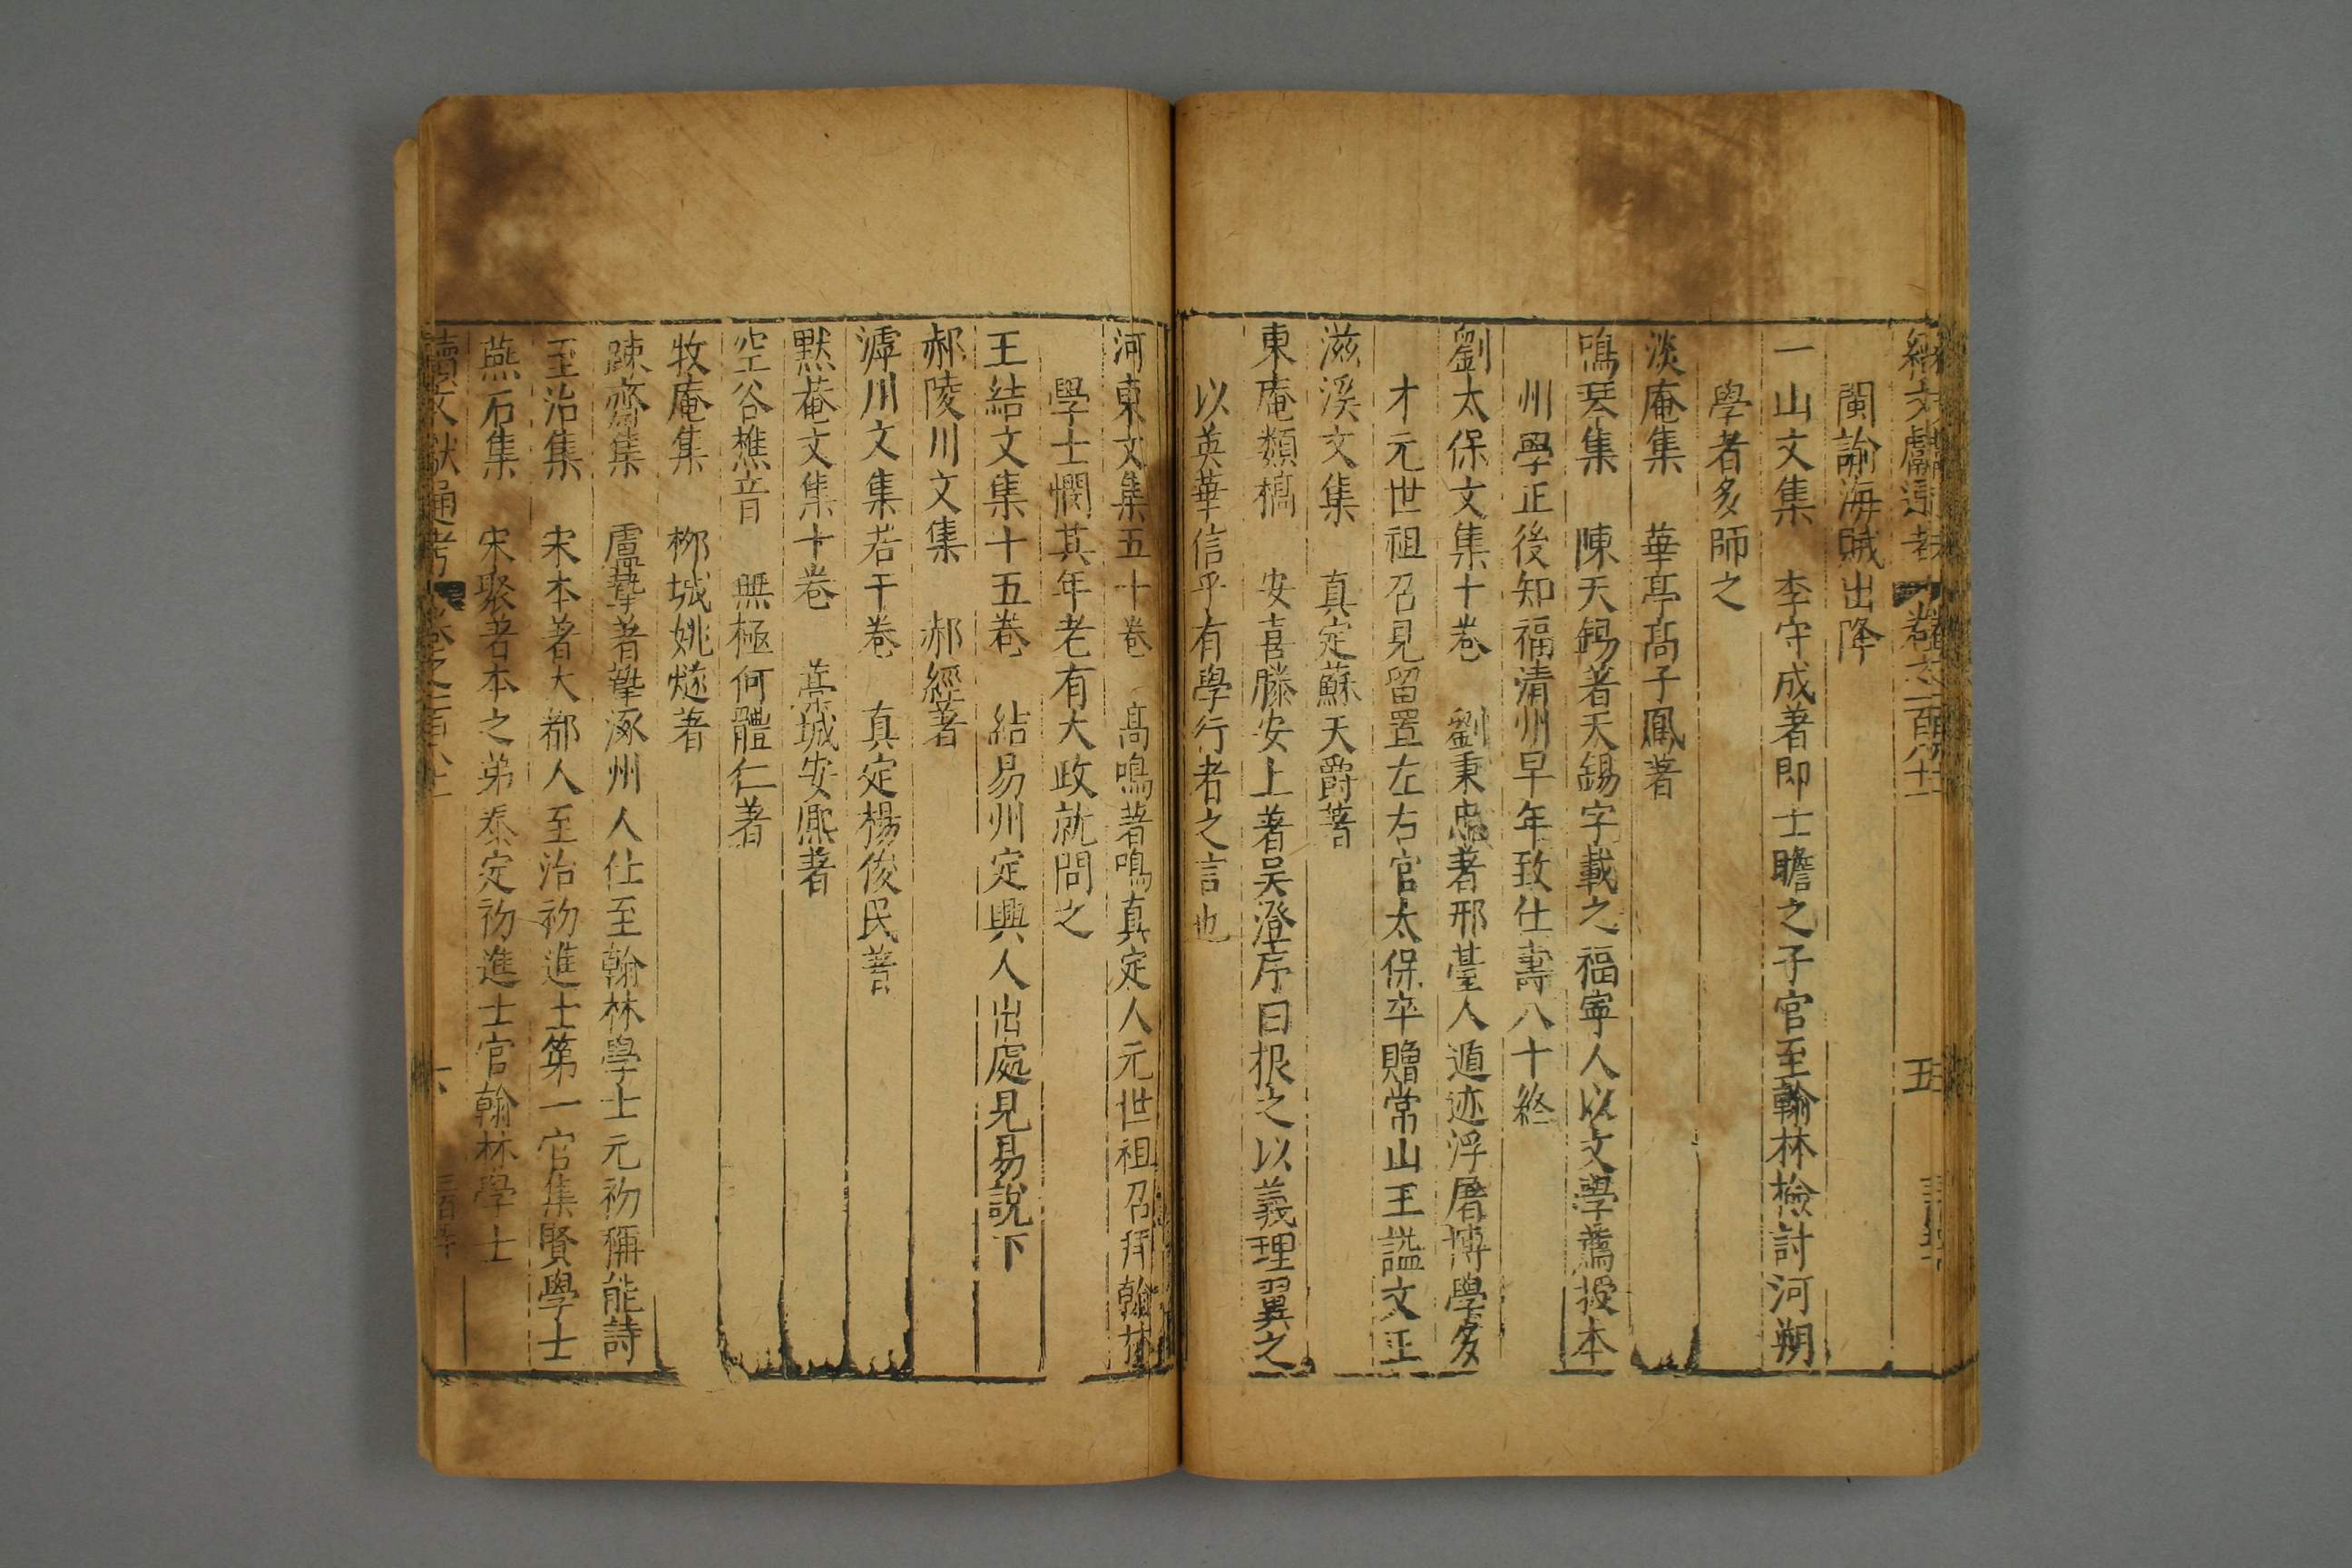 續文獻通考 卷之一百八十 五
閩諭海賊出降
一山文集 李守成著即士瞻之子官至翰林檢討河朔
學者多師之
淡庵集 華亭高子鳳著
鳴琴集 陳天錫著天錫字載之福寧人以文學薦授本
州學正後知福清州早年致仕壽八十終
劉太保文集十卷 劉秉忠著邢臺人遁迹浮屠博學多
才元世祖召見留置左右官太保卒贈常山王謚文正
滋溪文集 真定蘇天爵著
東庵類槁 安喜滕安上著吳澄序曰根之以義理翼之
以英華信乎有學行者之言也
河東文集五十卷 高鳴著鳴真定人元世祖召拜翰林
學士憫其年老有大政就問之
王結文集十五卷 結易州定興人出處見易說下
郝陵川文集 郝經著
滹川文集若干卷 真定楊俊民著
默菴文集十卷 藁城安熈著
空谷樵音 無極何體仁著
牧庵集 柳城姚燧著
踈齋集 盧摯著摯涿州人仕至翰林學士元初稱能詩
至治集 宋本著大都人至治初進士第一官集賢學士
燕石集 宋褧著本之弟泰定初進士官翰林學士
續文獻通考 卷之一百八十 六